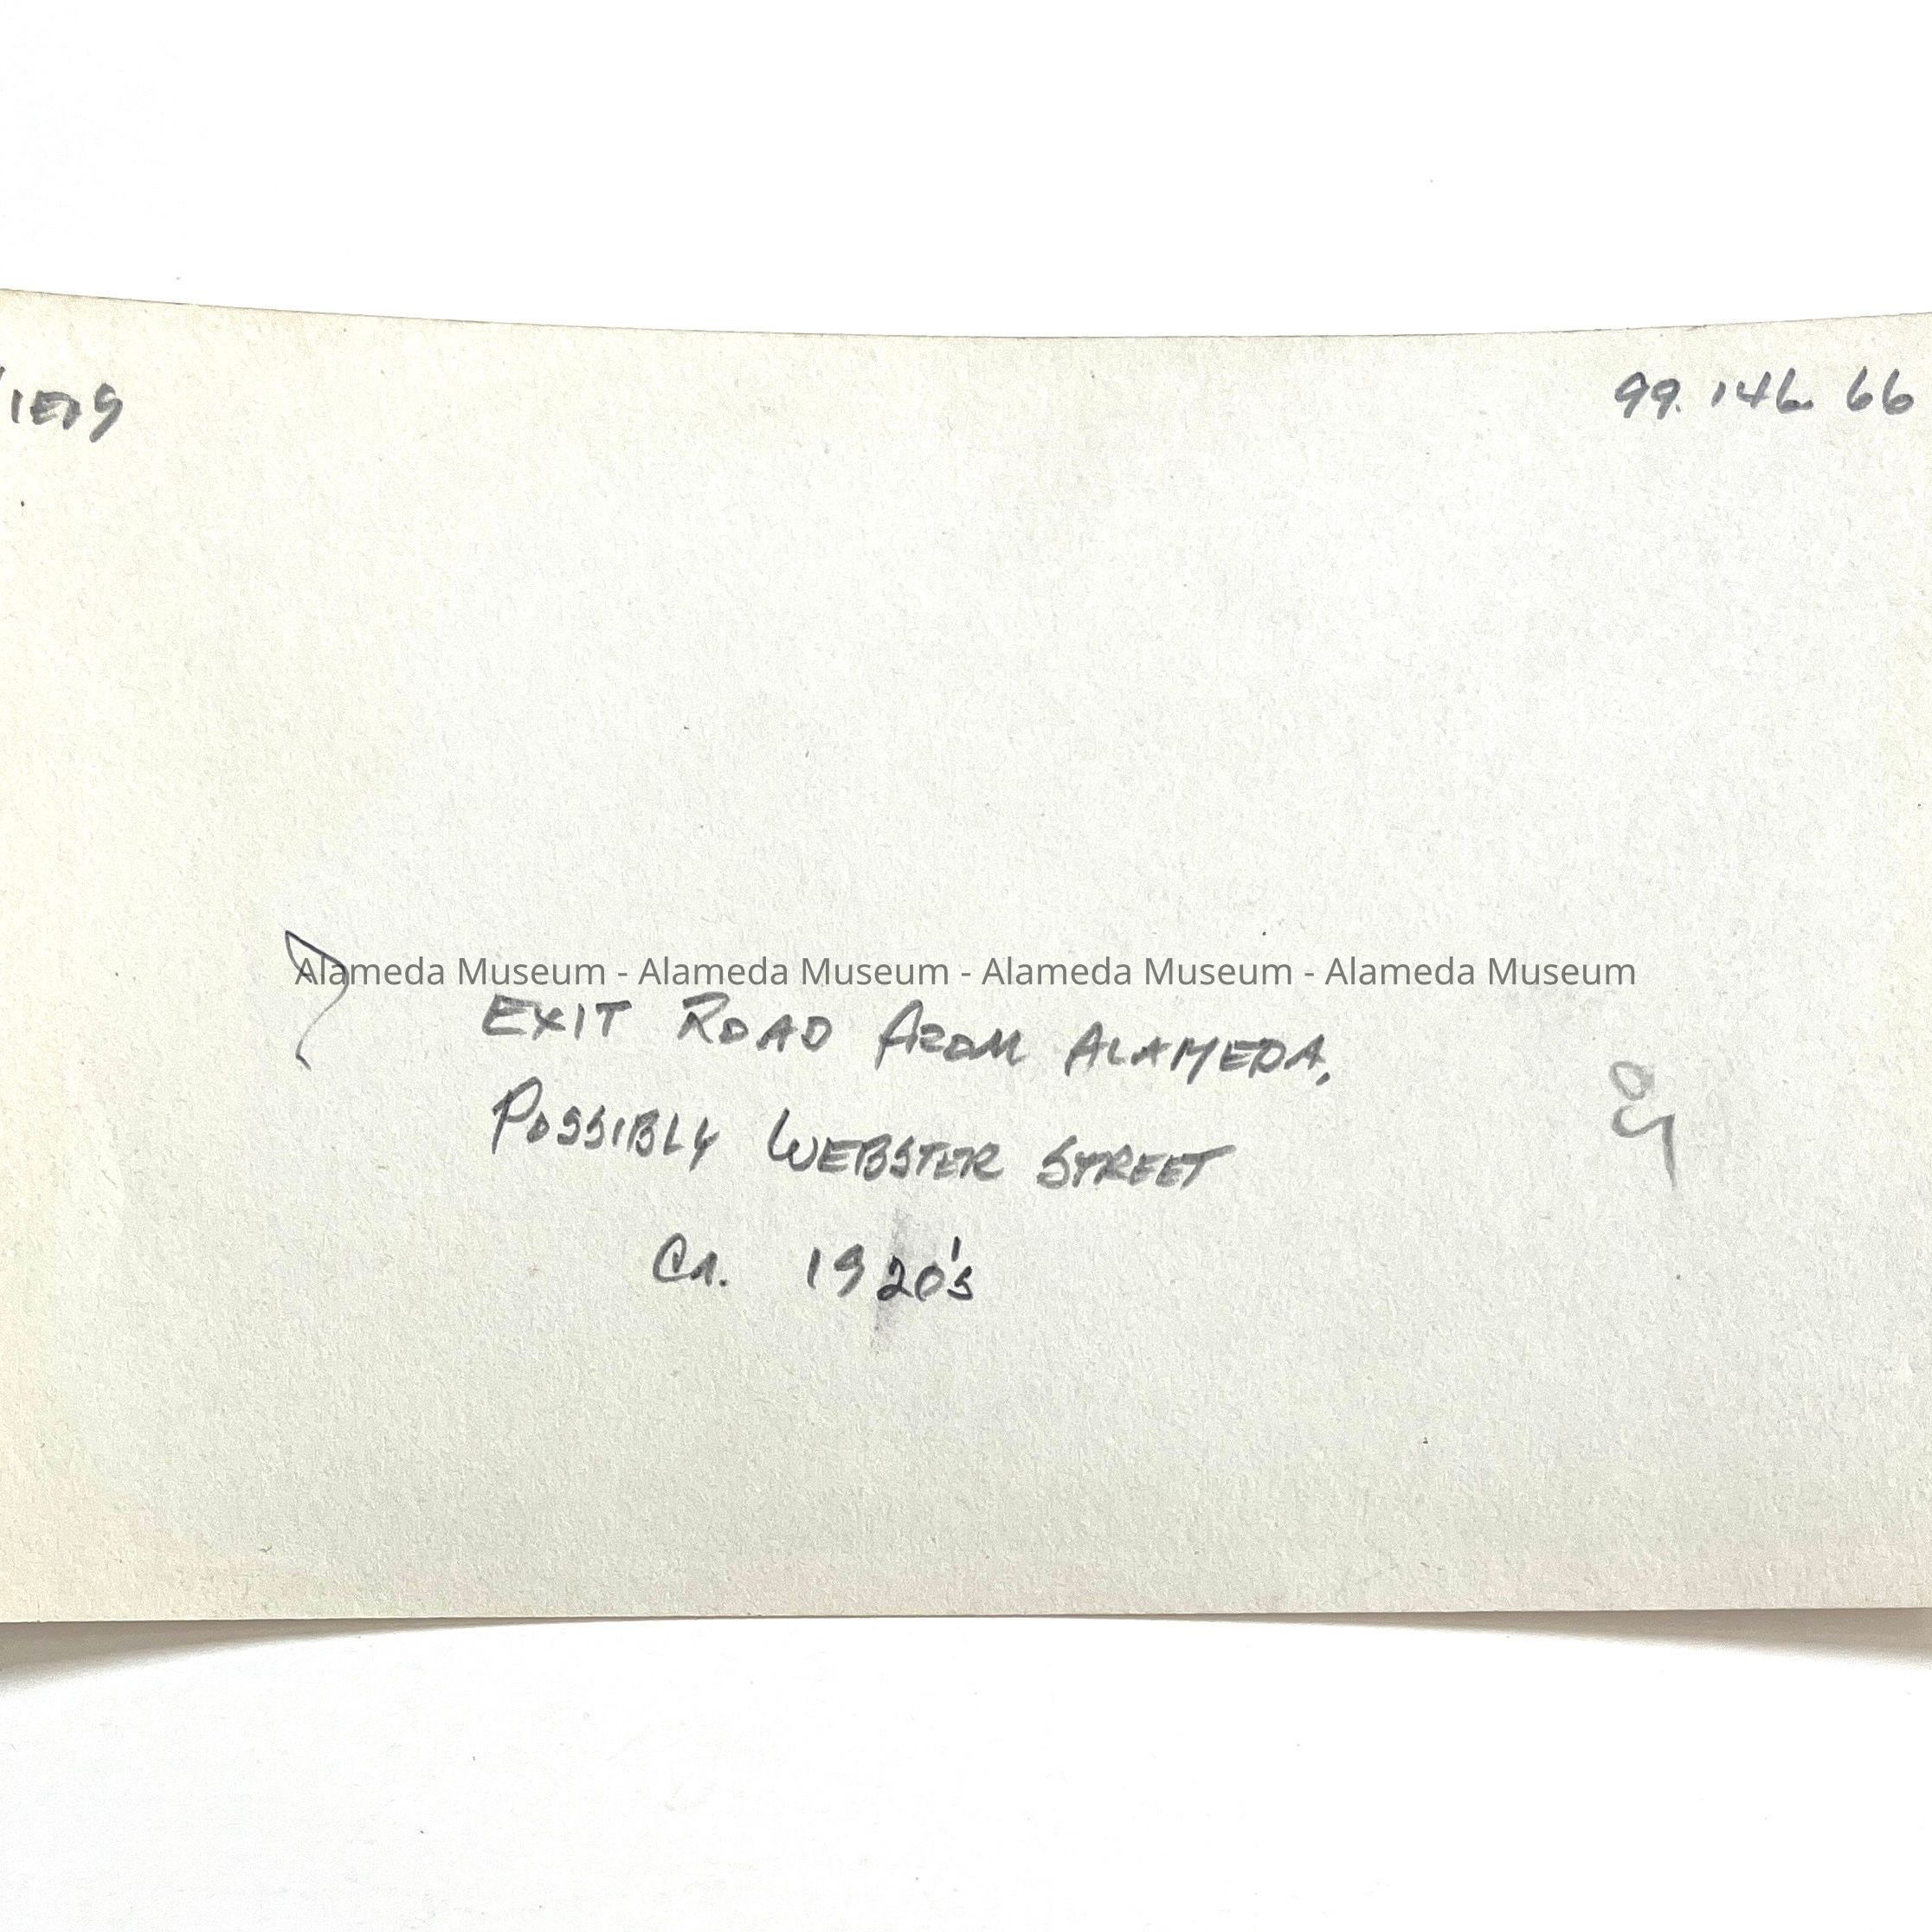 99.146.66
Alameda Museum - Alameda Museum - Alameda Museum - Alameda Museum
EXIT ROAD FROM ALAMEDA,
POSSIBLY WEBSTER STREET
CA. 1920's